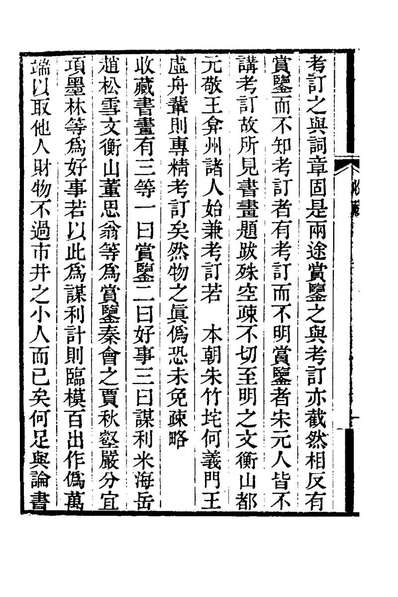 考訂之與詞章固是兩途賞鑒之與考訂亦截然相反有
賞鑒而不知考訂者有考訂而不明賞鑒者宋元人皆不
講考訂故所見書畫題跋殊空疎不切至明之文衡山都
元敬王弇州諸人始兼考訂若 本朝朱竹垞何義門王
虛舟輩則專精考訂矣然物之眞僞恐未免疎略
收藏書畫有三等一曰賞鑒二曰好事三曰謀利米海岳
趙松雪文衡山董思翁等爲賞鑒秦會之賈秋壑嚴分宜
項墨林等爲好事若以此爲謀利計則臨模百出作僞萬
端以取他人財物不過市井之小人而已矣何足與論書